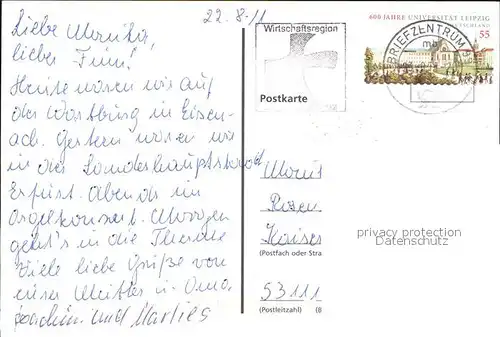 22.8.11
Liebe Monika,
lieber Timi!
Heute waren wir auf
der Wartburg in Eisen-
ach. Gestern waren wir
in der Landeshauptstadt
Erfurt. Abends im
Orgelkonzert. Morgen
geht's in die Therme
Viele liebe Grüße von
eurer Mutter u. Oma
Joachim und Marlies
Wirtschaftsregion
Postkarte
600 JAHRE UNIVERSITÄT LEIPZIG
DEUTSCHLAND
55
BRIEFZENTRUM
Moni
Rosen
Kaiser
privacy protection
Datenschutz
(Postfach oder Stra
53111
(Postleitzahl)